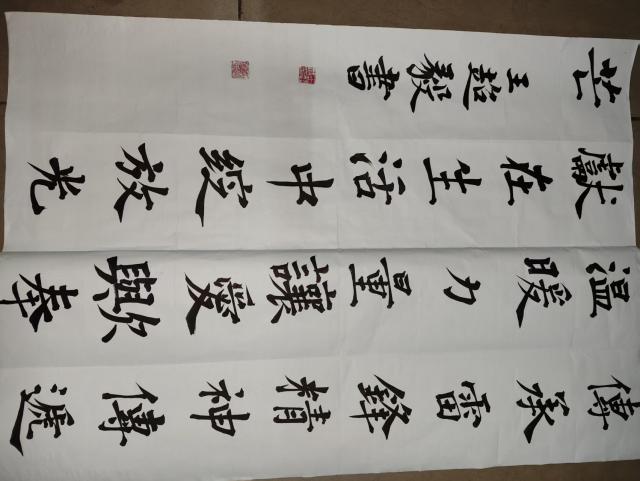 傳承雷鋒精神傳遞
温暖力量讓愛歟奉
獻在生活中綻放光
芒
王超毅書